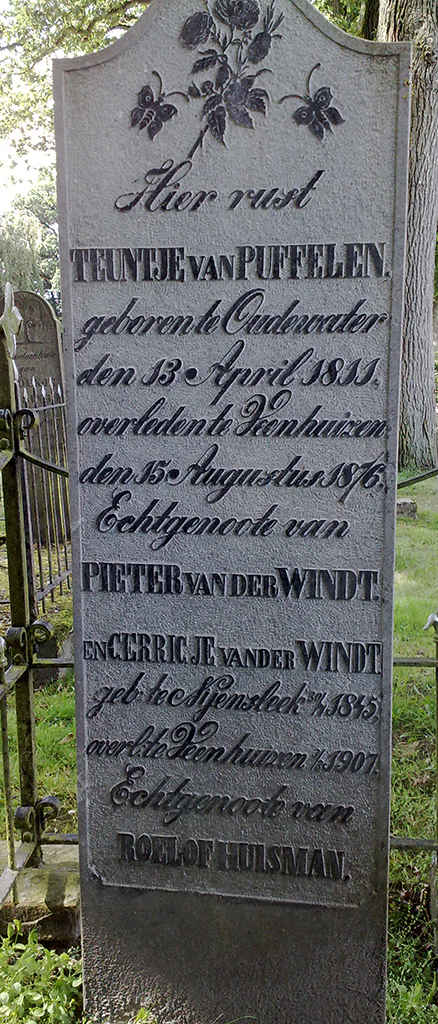 Hier rust
TEUNTJE VAN PUFFELEN.
geboren te Oudewater
den 13 April 1811.
overleden te Veenhuizen
den 15 Augustus 1876.
Echtgenoote van
PIETER VAN DER WINDT.
EN CERRIC JE VAN DER WINDT
geb: te Nijensleek 1845,
overl: te Veenhuizen 1907.
Echtgenoote van
ROELOF HUISMAN.